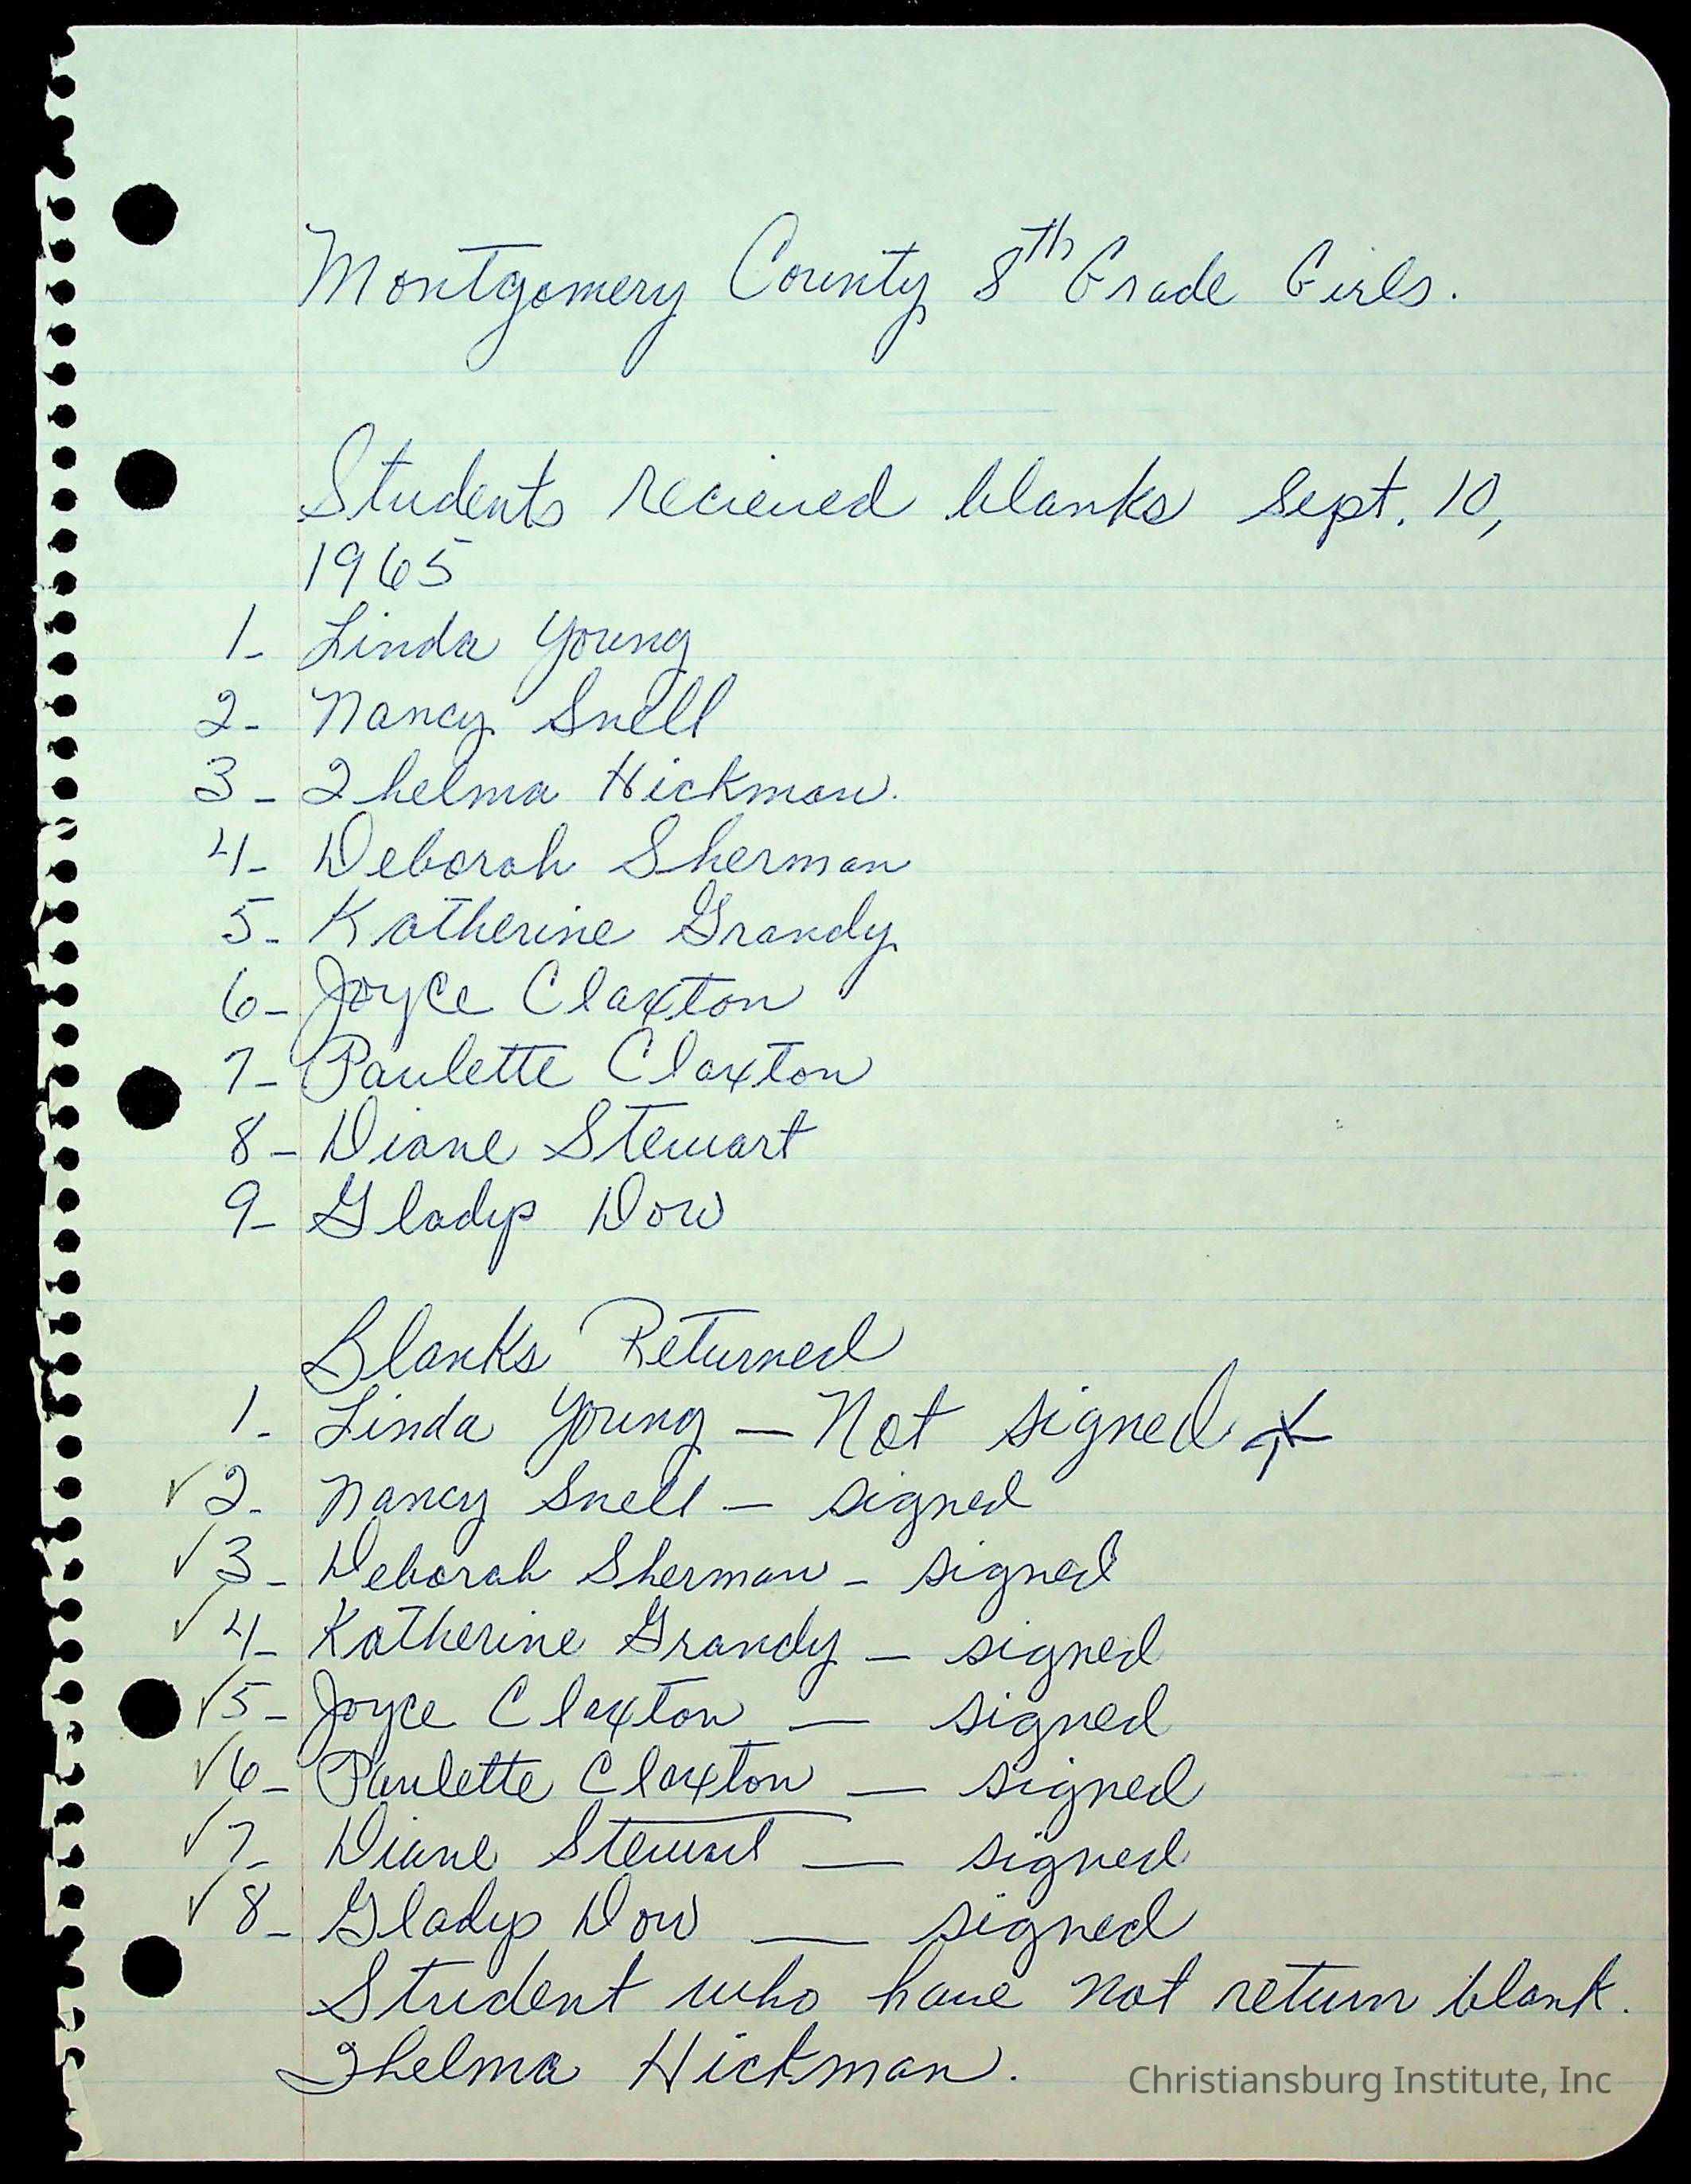 Montgomery County 8th Grade Girls.
Students recieved blanks Sept. 10,
1965
1- Linda Young
2- Nancy Snell
3- Thelma Hickman.
4- Deborah Sherman
5- Katherine Grandy
6- Joyce Claxton
7- Paulette Claxton
8- Diane Stewart
9- Gladys Dow
Blanks Returned
1- Linda Young — Not signed
✓ 2- Nancy Snell — signed
✓ 3- Deborah Sherman - signed
✓ 4- Katherine Grandy — signed
✓ 5- Joyce Claxton — signed
✓ 6- Paulette Claxton — signed
✓ 7- Diane Stewart — signed
✓ 8- Gladys Dow — signed
Student who have not return blank.
Thelma Hickman.
Christiansburg Institute, Inc